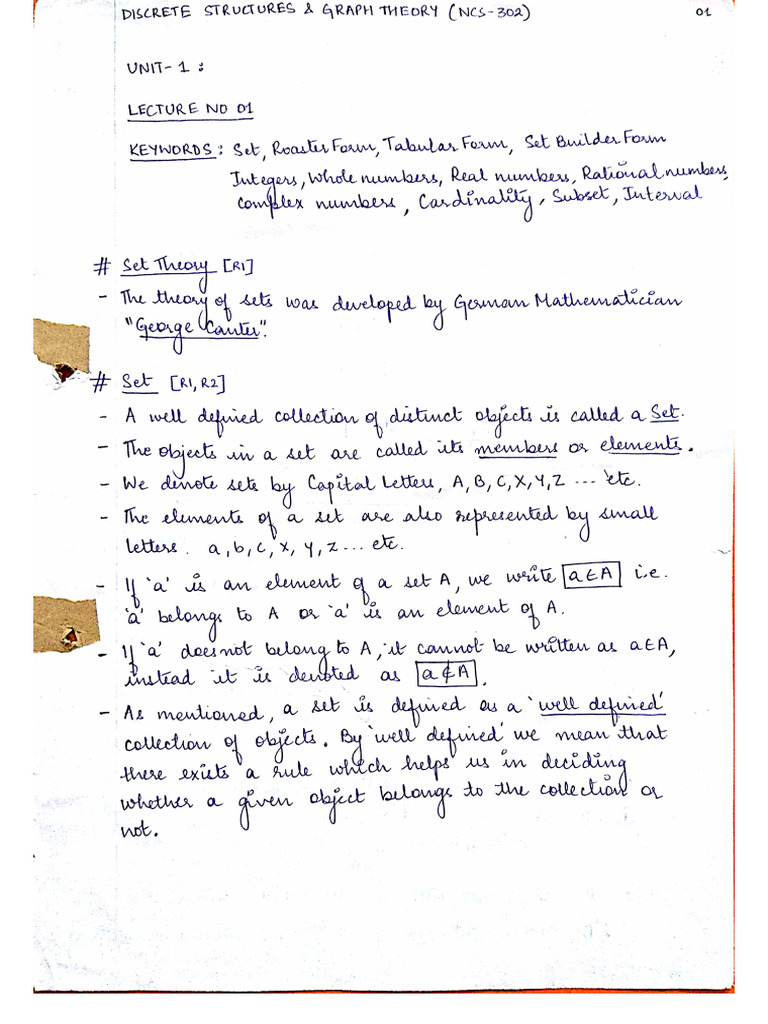 DISCRETE STRUCTURES & GRAPH THEORY (NCS-302) 01
UNIT-1 :
LECTURE NO 01
KEYWORDS : Set, Roaster Form, Tabular Form, Set Builder Form
Integers, Whole numbers, Real numbers, Rational numbers,
Complex numbers, Cardinality, Subset, Interval
# Set Theory [R1]
- The theory of sets was developed by German Mathematician
"George Canter".
# Set [R1, R2]
- A well defined collection of distinct objects is called a Set.
- The objects in a set are called its members or elements.
- We denote sets by Capital Letters, A, B, C, X, Y, Z ... etc.
- The elements of a set are also represented by small
letters. a, b, c, x, y, z ... etc.
- If 'a' is an element of a set A, we write a∈A i.e.
'a' belongs to A or 'a' is an element of A.
- If 'a' does not belong to A, it cannot be written as a∈A,
instead it is denoted as a∉A.
- As mentioned, a set is defined as a 'well defined'
collection of objects. By 'well defined' we mean that
there exists a rule which helps us in deciding
whether a given object belongs to the collection or
not.